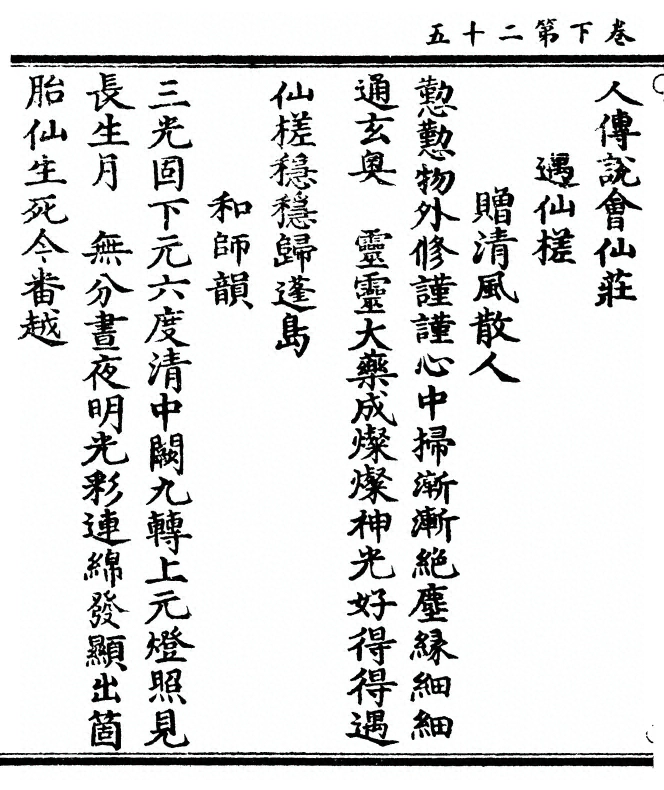 卷下第二十五
人傳說會仙莊
遇仙槎
贈清風散人
懃懃物外修謹謹心中掃漸漸絶塵緣細細
通玄奥 靈靈大藥成燦燦神光好得得遇
仙槎穩穩歸蓬島
和師韻
三光固下元六度清中闕九轉上元燈照見
長生月 無分晝夜明光彩連綿發顯出箇
胎仙生死今番越